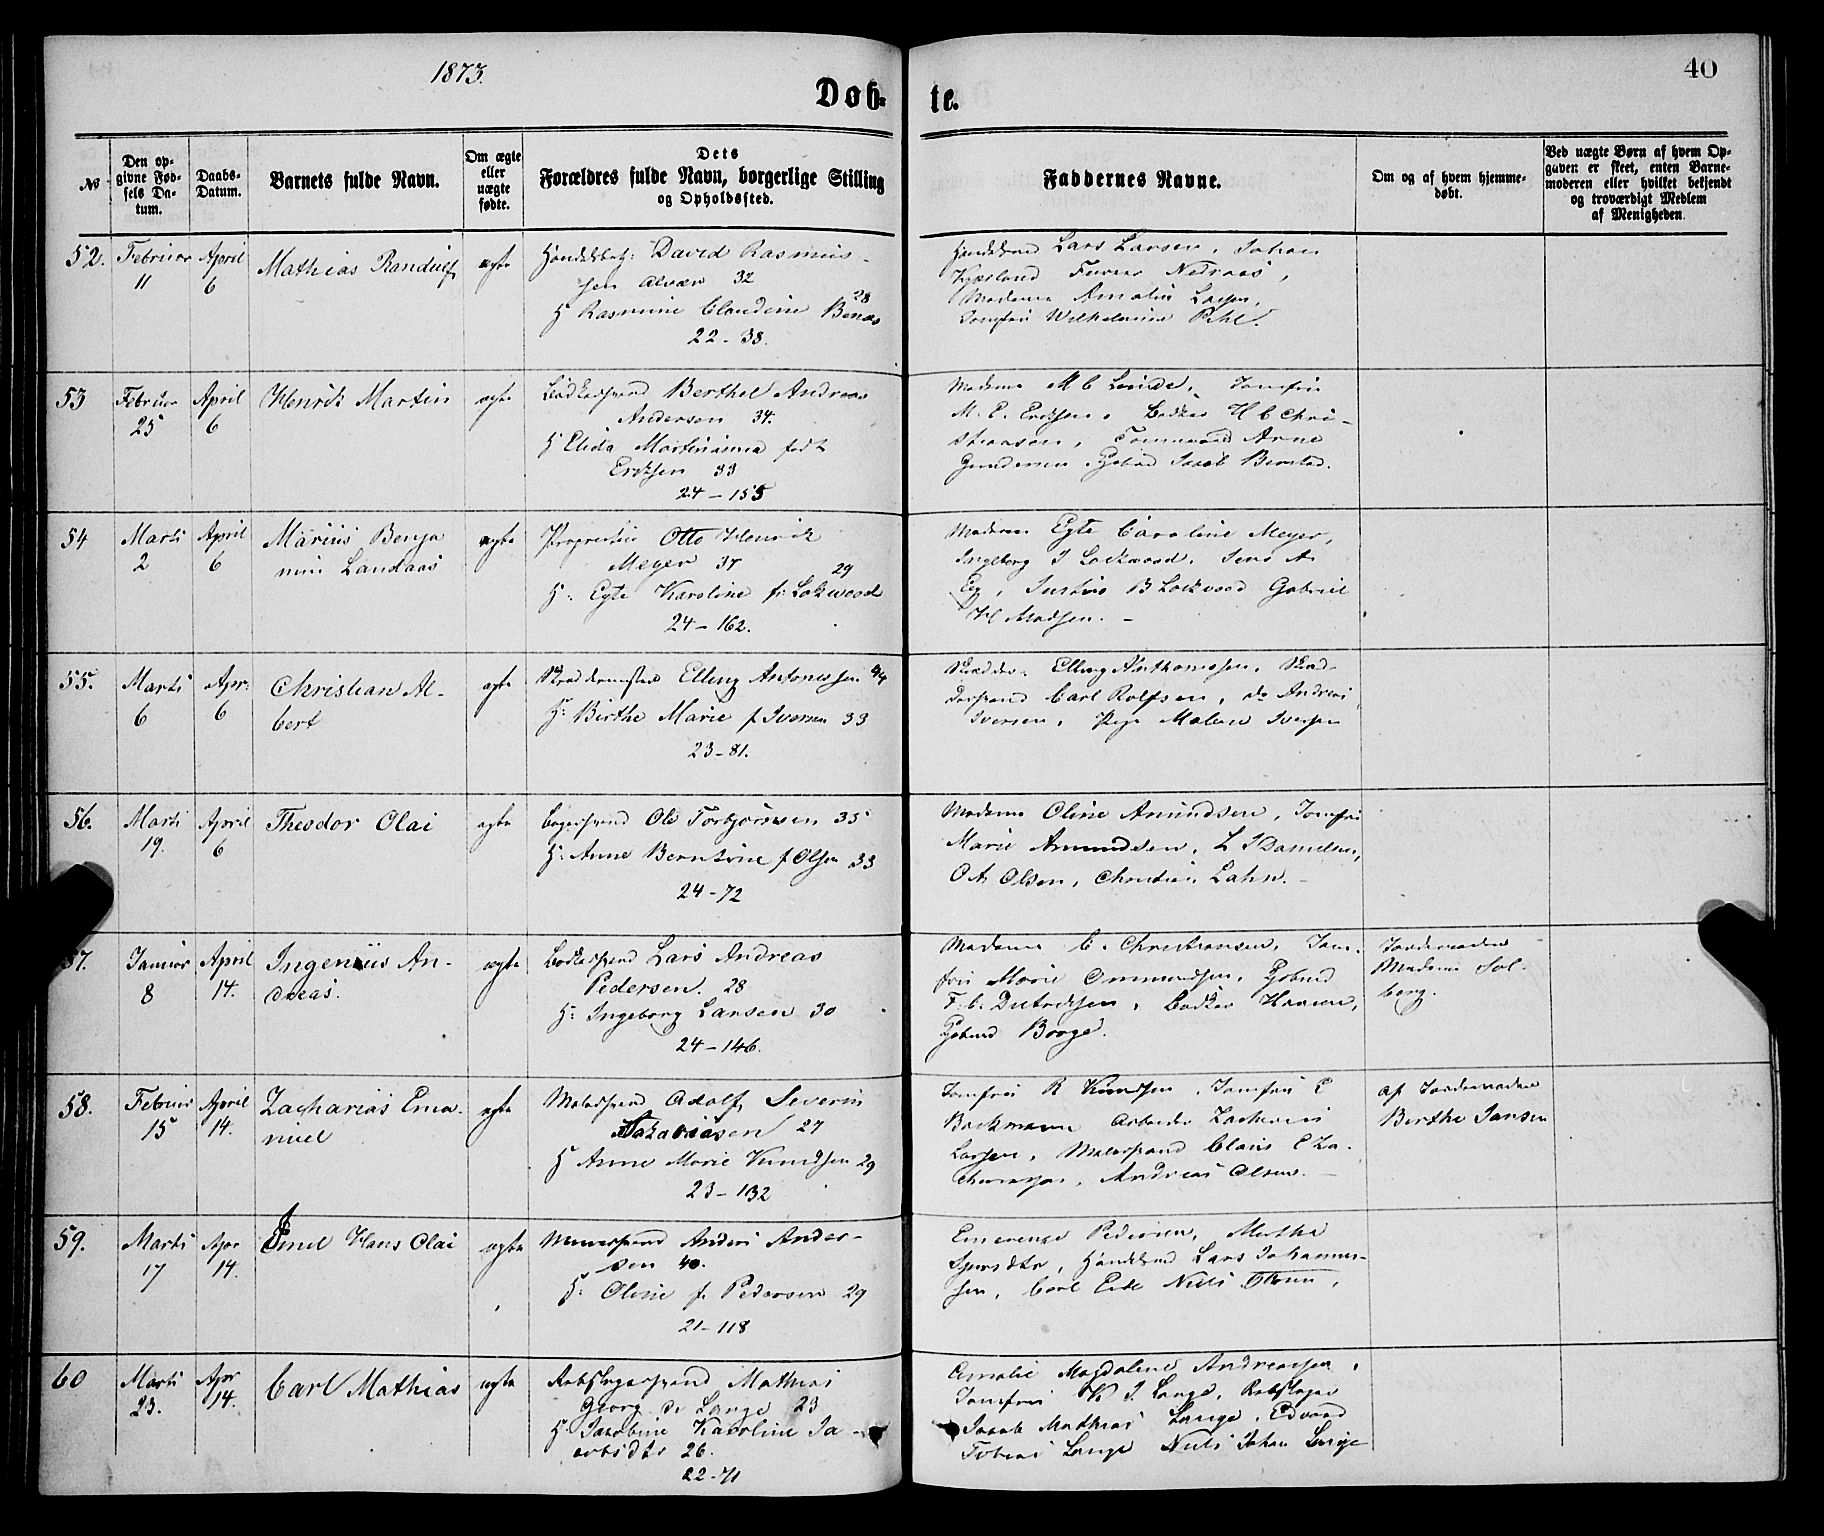 1873.
40
Døb- te.
No
Den op-
givne Fød-
sels Da-
tum.
Daabs-
Datum.
Barnets fulde Navn.
Om ægte
eller
uægte
fødte.
Dets
Forældres fulde Navn, borgerlige Stilling
og Opholdssted.
Faddernes Navne.
Om og af hvem hjemme-
døbt.
Ved uægte Børn af hvem Op-
gaven er skeet, enten Barne-
moderen eller hvilket bekjendt
og troværdigt Medlem
af Menigheden.
52.
Februar
11
April
6
Mathias Randulf
ægte
David Rasmus-
sen Alvær 32
H Rasmine Claudine 28
22-38.
Lars Larsen, Johan
Madame Amalie
Jomfru Wilhelmine Pihl.
53
Februar
25
April
6
Henrik Martin
ægte
Bødkersvend Berthel Andreas
Andersen 34.
H Elida Martinianna født
Eriksen 33
24-155
Madame M C Jomfru
M. E. Eriksen, Bødker H C Chri-
stensen, Arne
Gundersen
54
Marts
2
April
6
Marius Benja
min Landaas
ægte
Proprietær Otto Henrik
Meyer 37
H: Egte Karoline f: Lokwood 29
24-162.
Madame Egte Caroline Meyer,
Ingeborg J Lockwood, Jens A
B Lockwood Gabriel
H Madsen.
55.
Marts
6
Apr:
6
Christian Al-
bert
ægte
Skrædermester Elling Antonissen 44
H: Birthe Marie f Iversen 33
23-81.
Skrædder: Elling Anthonissen, Skræd-
dersvend Carl Rolfsen, do Andreas
Iversen, Pige Malene Iversen
56.
Marts
19.
April
6
Theodor Olai
ægte
Bagersvend Ole Torbjørnsen 35
H: Anne Berntine f Olsen 33
24-72
Madame Oline Amundsen, Jomfru
Marie Amundsen, L J Danielsen,
O A Olsen, Christian Lahn.
57.
Januar
8
April
14.
Ingenius An-
dreas.
ægte
Bødkersvend Lars Andreas
Pedersen. 28
H: Ingeborg Larsen 30
24-146.
Madame C. Christiansen, Jom-
fru Marie Ommundsen,
F. C. Diedrichsen, Bødker Hansen,
Jordemoder
Madame Sol-
berg.
58.
Februar
15
April
14.
Zacharias Ema-
nuel
ægte
Malersvend Adolf Severin
Sakariasen 27
H Anne Marie Knudsen 29
23-132
Jomfru R Knudsen, Jomfru E
Backmann Arbeider Zacharias
Larsen, Malersvend Claus E Za-
chariassen, Andreas Olsen.
af Jordemoder
Berthe Jansen
59.
Marts
17
Apr
14.
Emil Hans Olai
ægte
Murersvend Anders Ander-
sen 40.
H: Oline f. Pedersen 29
21-118
Emerense Pedersen, Martha
Lars Johannes-
sen, Carl Niels
60
Marts
23.
Apr
14.
Carl Mathias
ægte
Rebslagersvend Mathias
Georg de Lange 23
H: Jakobine Karoline Ja-
cobsdtr 26.
22-71
Amalie Magdalene Andreassen,
Jomfru K J. Lange, Rebslager
Jacob Mathias Lange, Edvard
Tobias Lange Niels Johan Lange